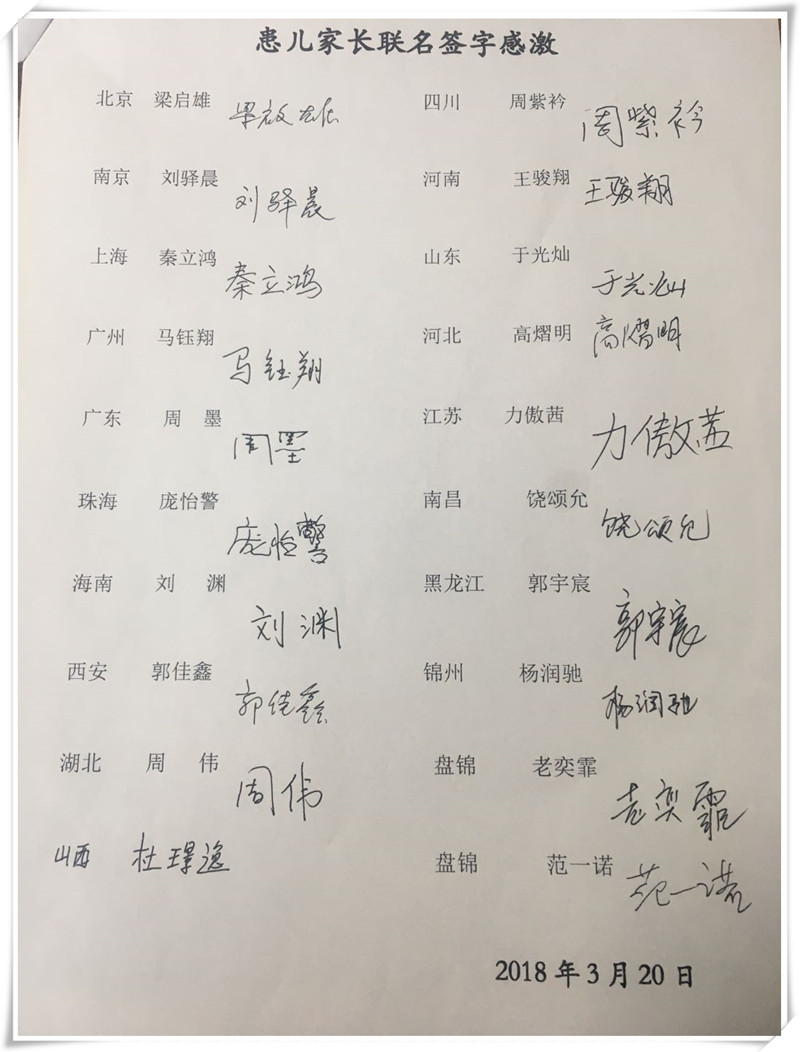 患儿家长联名签字感激
北京 梁启雄 梁启雄 四川 周紫衿 周紫衿
南京 刘驿晨 刘驿晨 河南 王骏翔 王骏翔
上海 秦立鸿 秦立鸿 山东 于光灿 于光灿
广州 马钰翔 马钰翔 河北 高熠明 高熠明
广东 周 墨 周墨 江苏 力傲茜 力傲茜
珠海 庞怡警 庞怡警 南昌 饶颂允 饶颂允
海南 刘 渊 刘渊 黑龙江 郭宇宸 郭宇宸
西安 郭佳鑫 郭佳鑫 锦州 杨润驰 杨润驰
湖北 周 伟 周伟 盘锦 老奕霏 老奕霏
山西 杜璟逸 盘锦 范一诺 范一诺
2018 年 3 月 20 日